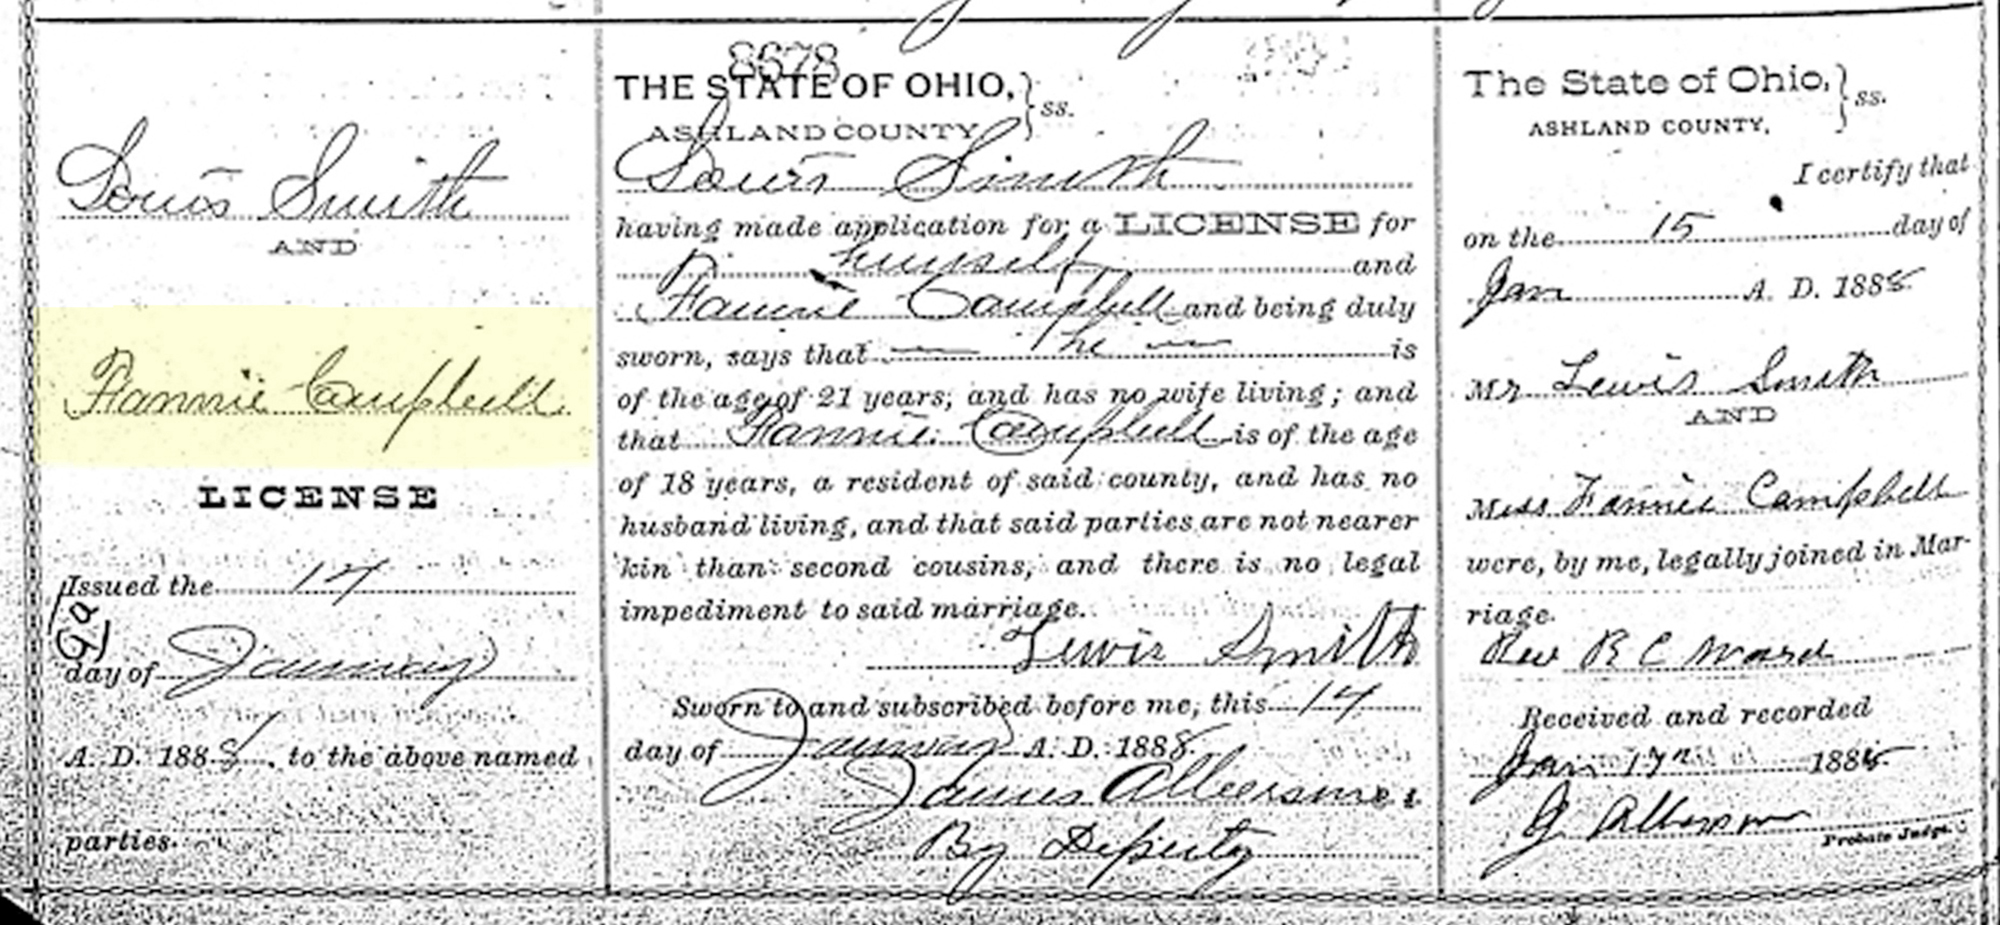 Louis Smith
AND
Fannie Campbell
LICENSE
Issued the 14
day of January
A. D. 1888, to the above named
parties.
8678
THE STATE OF OHIO, } ss.
ASHLAND COUNTY,
Louis Smith
having made application for a LICENSE for
himself and
Fannie Campbell and being duly
sworn, says that — he — is
of the age of 21 years; and has no wife living; and
that Fannie Campbell is of the age
of 18 years, a resident of said county, and has no
husband living, and that said parties are not nearer
kin than second cousins, and there is no legal
impediment to said marriage.
Lewis Smith
Sworn to and subscribed before me, this 14
day of January A. D. 1888.
James
By Deputy
The State of Ohio, } ss.
ASHLAND COUNTY,
I certify that
on the 15 day of
Jan A. D. 1888
Mr Lewis Smith
AND
Miss Fannie Campbell
were, by me, legally joined in Mar-
riage.
Rev R C Ward
Received and recorded
Jan 17th 1888
J.
Probate Judge.